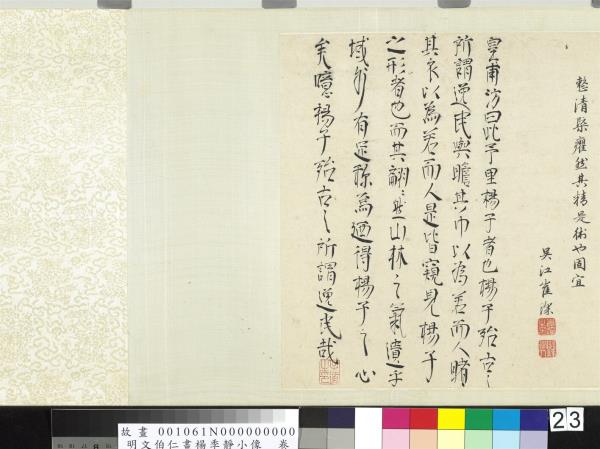 整清癯癯然其精是術也固宜
吳江崔深
皇甫汸曰此予里楊子者也楊子殆古之
所謂逸民與瞻其巾以為若而人睹
其衣以為若而人是皆窺見楊子
之形者也而其翩翩然山林之氣遺乎
域外有足稱焉迺得楊子之心
矣噫楊子殆古之所謂逸民哉
23
故畫 001061N000000000
明文伯仁畫楊季靜小像 卷